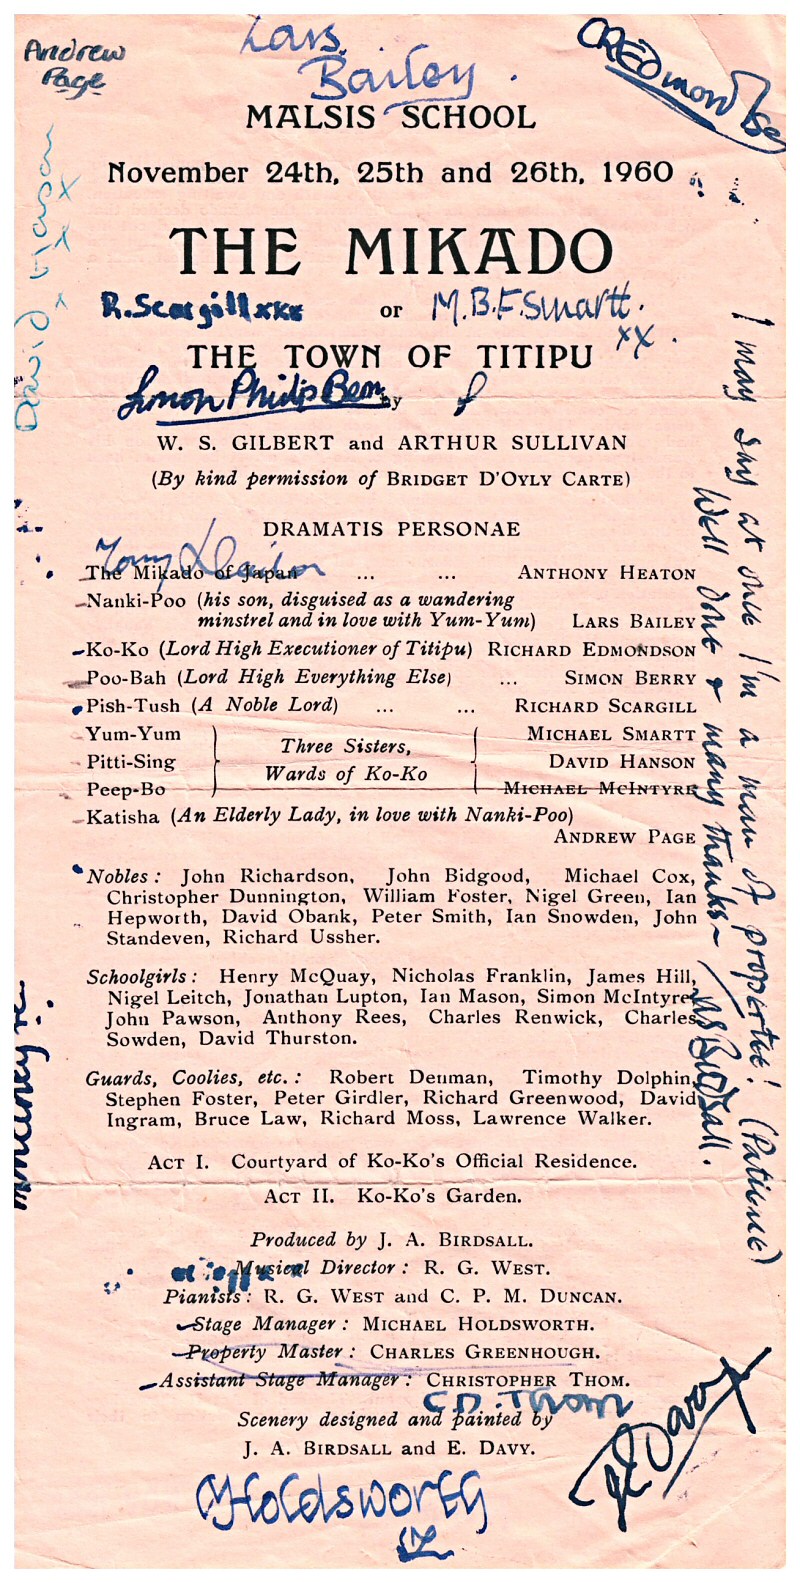 Andrew
Page
Lars
Bailey
CREdmondson
MALSIS SCHOOL
November 24th, 25th and 26th, 1960
THE MIKADO
R. Scargill xxx
or
M.B.F. Smartt.
xx
THE TOWN OF TITIPU
Simon Philip Berry
by
W. S. GILBERT and ARTHUR SULLIVAN
(By kind permission of BRIDGET D'OYLY CARTE)
DRAMATIS PERSONAE
Tony
The Mikado of Japan ... ... ANTHONY HEATON
Nanki-Poo (his son, disguised as a wandering
minstrel and in love with Yum-Yum) LARS BAILEY
Ko-Ko (Lord High Executioner of Titipu) RICHARD EDMONDSON
Poo-Bah (Lord High Everything Else) ... SIMON BERRY
Pish-Tush (A Noble Lord) ... ... RICHARD SCARGILL
Yum-Yum MICHAEL SMARTT
Pitti-Sing Three Sisters, DAVID HANSON
Peep-Bo Wards of Ko-Ko MICHAEL McINTYRE
Katisha (An Elderly Lady, in love with Nanki-Poo)
ANDREW PAGE
Nobles: John Richardson, John Bidgood, Michael Cox,
Christopher Dunnington, William Foster, Nigel Green, Ian
Hepworth, David Obank, Peter Smith, Ian Snowden, John
Standeven, Richard Ussher.
Schoolgirls: Henry McQuay, Nicholas Franklin, James Hill,
Nigel Leitch, Jonathan Lupton, Ian Mason, Simon McIntyre,
John Pawson, Anthony Rees, Charles Renwick, Charles
Sowden, David Thurston.
Guards, Coolies, etc.: Robert Denman, Timothy Dolphin,
Stephen Foster, Peter Girdler, Richard Greenwood, David
Ingram, Bruce Law, Richard Moss, Lawrence Walker.
ACT I. Courtyard of Ko-Ko's Official Residence.
ACT II. Ko-Ko's Garden.
Produced by J. A. BIRDSALL.
Musical Director: R. G. WEST.
Pianists: R. G. WEST and C. P. M. DUNCAN.
Stage Manager: MICHAEL HOLDSWORTH.
Property Master: CHARLES GREENHOUGH.
Assistant Stage Manager: CHRISTOPHER THOM.
C.D. Thom
Scenery designed and painted by
J. A. BIRDSALL and E. DAVY.
Holdsworth
E Davy
David Hanson xxx
I may say at once I'm a man of propertee! (Patience)
Well done & many thanks~ JABirdsall.